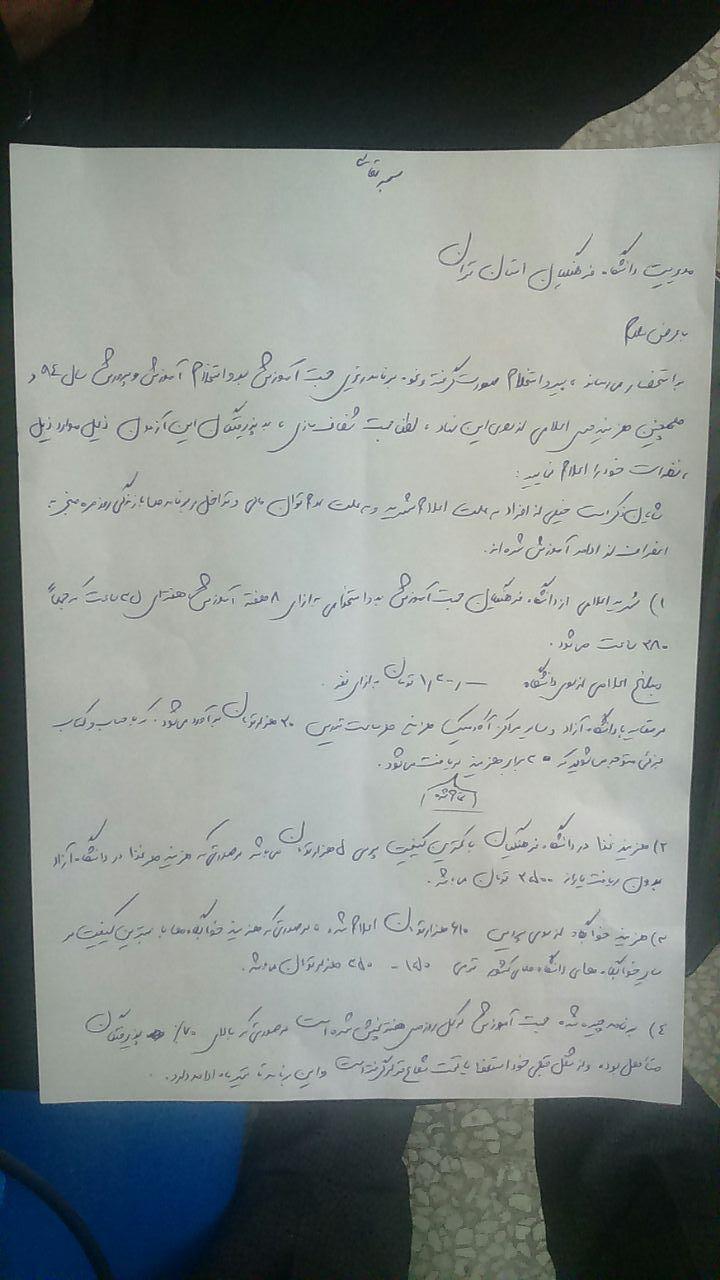 بسمه تعالی
مدیریت دانشگاه فرهنگیان استان تهران
با عرض سلام
به استحضار می رساند ، پیرو استخدام صورت گرفته و نحوه برنامه ریزی جهت آموزش بدو استخدام آموزش و پرورش سال ۹۴ و
همچنین هزینه های اعلامی از سوی این نهاد ، لطفا جهت شفاف سازی ، به پذیرفتگان این آزمون ذیل موارد ذیل
، نظرات خود را اعلام نمایید :
شایان ذکر است خیلی از افراد به علت اعلام شهریه و به علت عدم توان مالی و تداخل در برنامه ها با زندگی روزمره منجر به
انصراف از ادامه آموزش شده اند.
۱) شهریه اعلامی از دانشگاه فرهنگیان جهت آموزش بدو استخدامی به ازای ۸ هفته آموزش هفته ای ساعت که جمعاً
۳۸۰ ساعت می شود .
مبلغ اعلامی از سوی دانشگاه تومان به ازای نفر .
در مقایسه با دانشگاه آزاد و سایر مراکز آکادمیک هزینه هر ساعت تدریس ۳۰ هزار تومان برآورد می شود . که با حساب و کتاب
جزئی متوجه می شوید که برابر هزینه دریافت می شود .
تمام شده
۲) هزینه غذا در دانشگاه فرهنگیان با کمترین کیفیت پرسی ۵ هزار تومان می باشد در صورتی که هزینه هر غذا در دانشگاه آزاد
بدون دریافت یارانه ۳۵۰۰ تومان می باشد .
۳) هزینه خوابگاه از سوی پردیس ۶۱۰ هزار تومان اعلام شده ، در صورتی که هزینه خوابگاه ها با بهترین کیفیت در
سایر خوابگاه های دانشگاه های کشور ترمی ۱۵۰ - ۲۵۰ هزار تومان می باشد .
۴) برنامه چیده شده جهت آموزش در کل روزهای هفته پخش شده است در صورتی که بالای ۷۰٪ پذیرفتگان
متأهل بوده و از شغل قبلی خود استعفا یا تحت شعاع قرار گرفته است و این برنامه تا تیر ماه ادامه دارد .